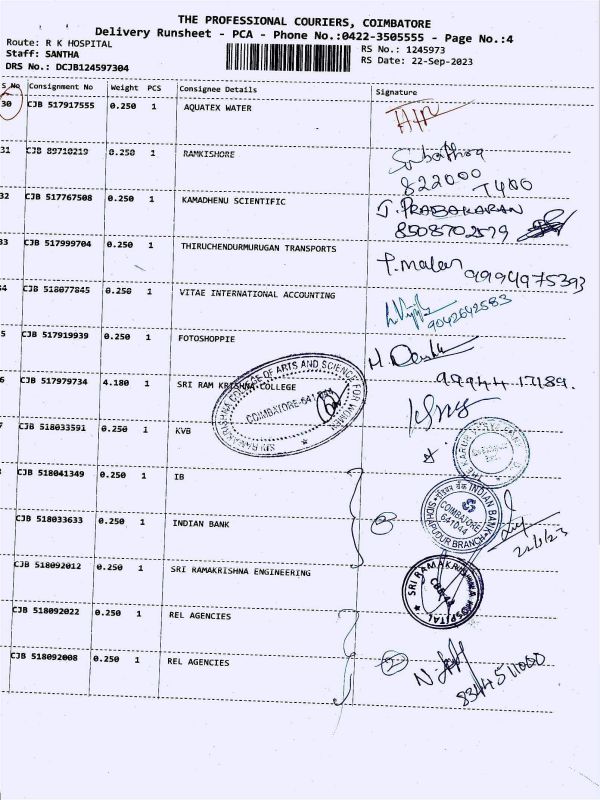 THE PROFESSIONAL COURIERS, COIMBATORE
Delivery Runsheet - PCA - Phone No.:0422-3505555 - Page No.:4
Route: R K HOSPITAL
RS No.: 1245973
Staff: SANTHA
RS Date: 22-Sep-2023
DRS No.: DCJB124597304
S No Consignment No Weight PCS Consignee Details Signature
30 CJB 517917555 0.250 1 AQUATEX WATER
31 CJB 89710219 0.250 1 RAMKISHORE
822000
7400
32 CJB 517767508 0.250 1 KAMADHENU SCIENTIFIC J. PRABAKARAN
8508702579
33 CJB 517999704 0.250 1 THIRUCHENDURMURUGAN TRANSPORTS
9994975393
34 CJB 518077845 0.250 1 VITAE INTERNATIONAL ACCOUNTING
9042642583
5 CJB 517919939 0.250 1 FOTOSHOPPIE
99944 17189.
6 CJB 517979734 4.180 1 SRI RAM KRISHNA COLLEGE
SRI RAMAKRISHNA COLLEGE OF ARTS AND SCIENCE FOR WOMEN
COIMBATORE-641 044
7 CJB 518033591 0.250 1 KVB
CJB 518041349 0.250 1 IB
INDIAN BANK
COIMBATORE
641044
SIDHAPUDUR BRANCH
CJB 518033633 0.250 1 INDIAN BANK
22/9/23
CJB 518092012 0.250 1 SRI RAMAKRISHNA ENGINEERING
SRI RAMAKRISHNA HOSPITAL
CBE-44
CJB 518092022 0.250 1 REL AGENCIES
CJB 518092008 0.250 1 REL AGENCIES
8344511000